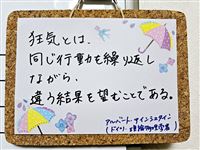 狂気とは、
同じ行動を繰り返し
ながら、
違う結果を望むことである。
アルバート・アインシュタイン
(ドイツ・理論物理学者)